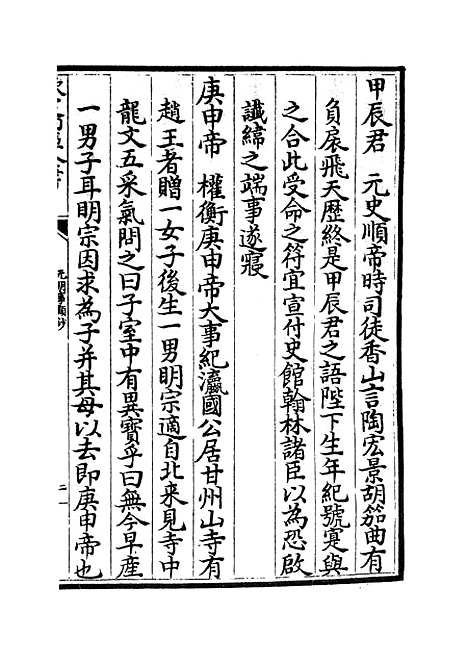 甲辰君　元史順帝時司徒香山言陶宏景胡笳曲有
負扆飛天歴終是甲辰君之語陛下生年紀號寔與
之合此受命之符宜宣付史館翰林諸臣以為恐啟
讖緯之端事遂寢
庚申帝　權衡庚申帝大事紀瀛國公居甘州山寺有
趙王者贈一女子後生一男明宗適自北来見寺中
龍文五采氣問之曰子室中有異寶乎曰無今早産
一男子耳明宗因求為子并其母以去即庚申帝也
元明事類鈔